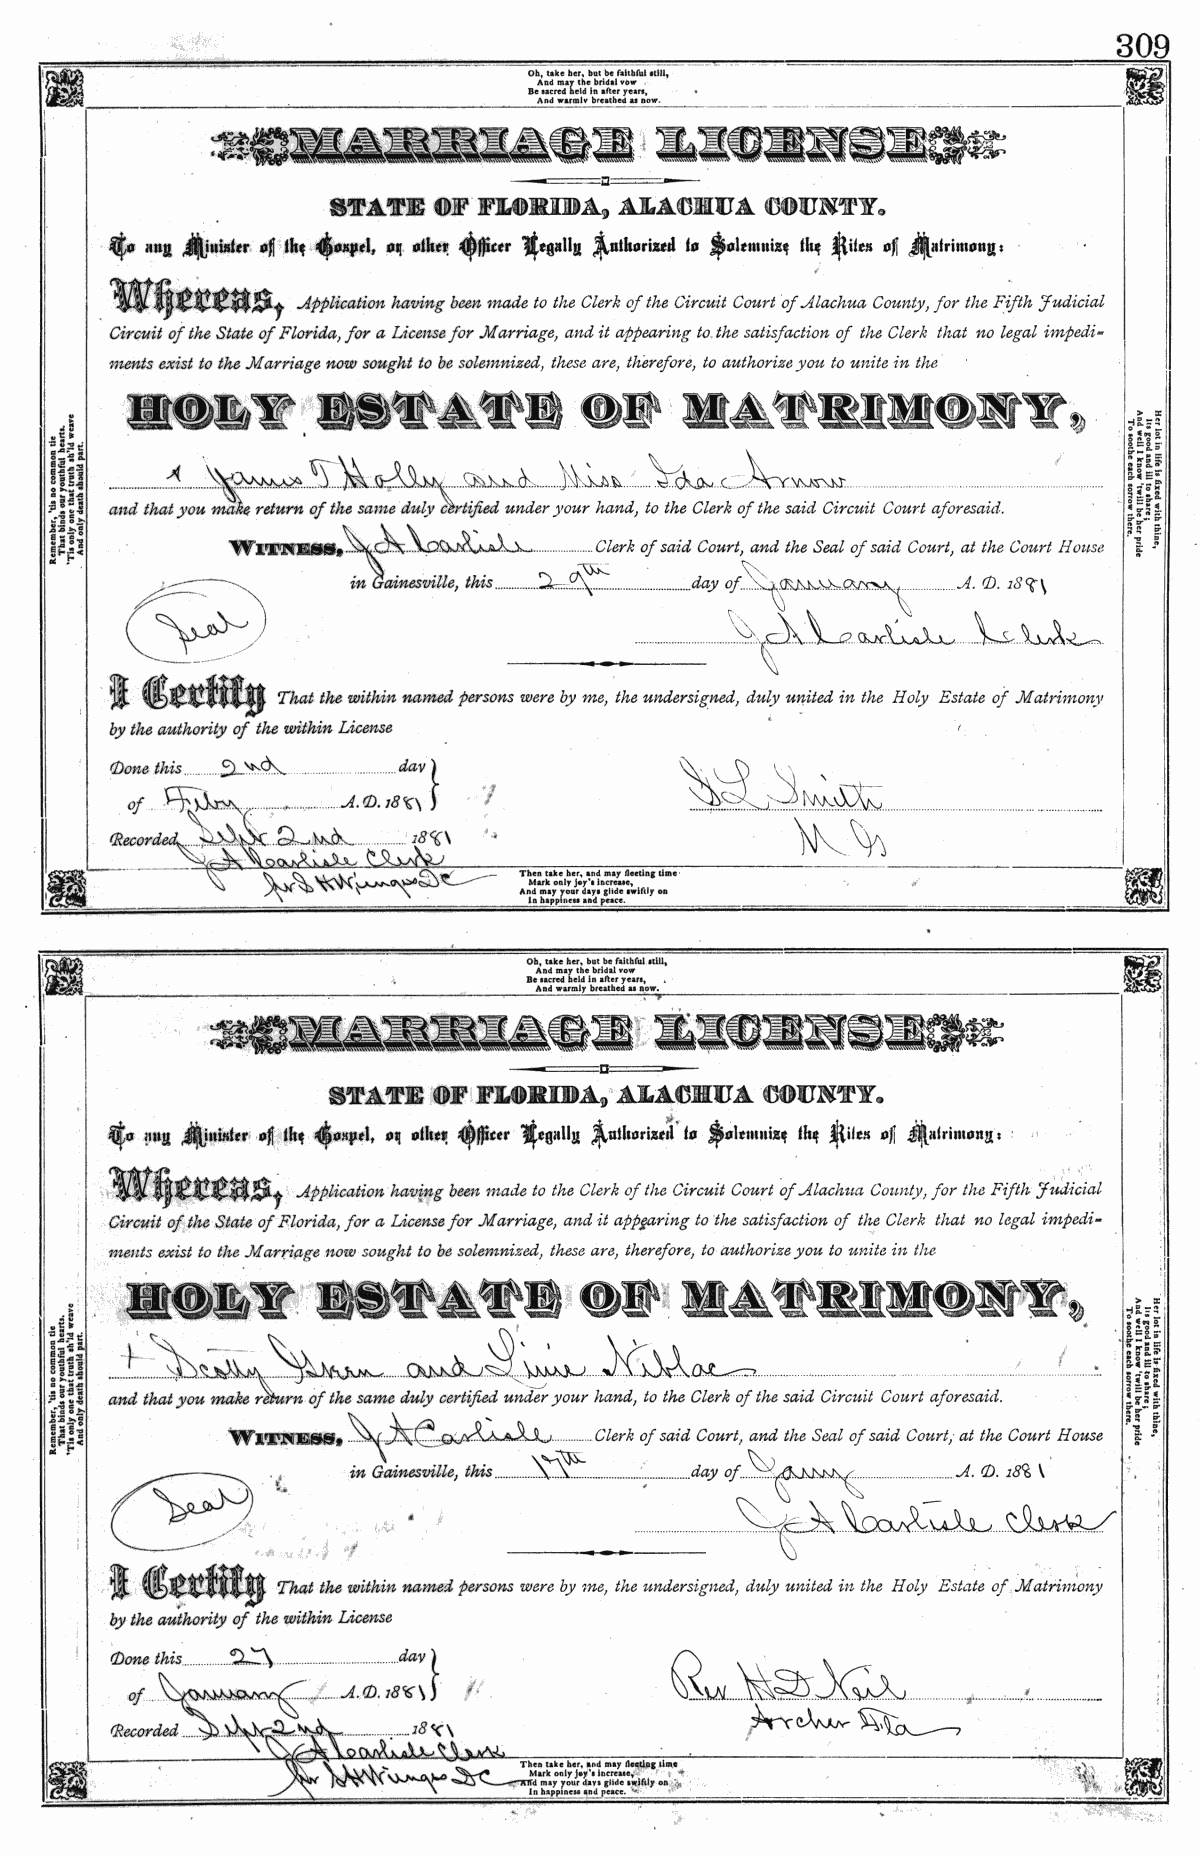 309
Oh, take her, but be faithful still,
And may the bridal vow
Be sacred held in after years,
And warmly breathed as now.
MARRIAGE LICENSE
STATE OF FLORIDA, ALACHUA COUNTY.
To any Minister of the Gospel, or other Officer Legally Authorized to Solemnize the Rites of Matrimony:
Whereas, Application having been made to the Clerk of the Circuit Court of Alachua County, for the Fifth Judicial
Circuit of the State of Florida, for a License for Marriage, and it appearing to the satisfaction of the Clerk that no legal impedi-
ments exist to the Marriage now sought to be solemnized, these are, therefore, to authorize you to unite in the
HOLY ESTATE OF MATRIMONY,
James T Holly and Miss Ida Arnow
and that you make return of the same duly certified under your hand, to the Clerk of the said Circuit Court aforesaid.
WITNESS, J A Carlisle Clerk of said Court, and the Seal of said Court, at the Court House
in Gainesville, this 29th day of January A. D. 1881
Seal
J A Carlisle Clerk
I Certify That the within named persons were by me, the undersigned, duly united in the Holy Estate of Matrimony
by the authority of the within License
Done this 2nd day
of Feby A. D. 1881
S L Smith
M G
Recorded Sept 2nd 1881
J A Carlisle Clerk
per S H Wienges D C
Remember, 'tis no common tie
That binds our youthful hearts,
'Tis only one that truth sh'ld weave
And only death should part.
Her lot in life is fixed with thine,
Its good and ill to share;
And well I know 'twill be her pride
To soothe each sorrow there.
Then take her, and may fleeting time
Mark only joy's increase,
And may your days glide swiftly on
In happiness and peace.
Oh, take her, but be faithful still,
And may the bridal vow
Be sacred held in after years,
And warmly breathed as now.
MARRIAGE LICENSE
STATE OF FLORIDA, ALACHUA COUNTY.
To any Minister of the Gospel, or other Officer Legally Authorized to Solemnize the Rites of Matrimony:
Whereas, Application having been made to the Clerk of the Circuit Court of Alachua County, for the Fifth Judicial
Circuit of the State of Florida, for a License for Marriage, and it appearing to the satisfaction of the Clerk that no legal impedi-
ments exist to the Marriage now sought to be solemnized, these are, therefore, to authorize you to unite in the
HOLY ESTATE OF MATRIMONY,
Scotty Green and Linie Niblac
and that you make return of the same duly certified under your hand, to the Clerk of the said Circuit Court aforesaid.
WITNESS, J A Carlisle Clerk of said Court, and the Seal of said Court, at the Court House
in Gainesville, this 17th day of Jany A. D. 1881
Seal
J A Carlisle Clerk
I Certify That the within named persons were by me, the undersigned, duly united in the Holy Estate of Matrimony
by the authority of the within License
Done this 27 day
of January A. D. 1881
Rev H D Neil
Archer Fla
Recorded Sept 2nd 1881
J A Carlisle Clerk
per S H Wienges D C
Remember, 'tis no common tie
That binds our youthful hearts,
'Tis only one that truth sh'ld weave
And only death should part.
Her lot in life is fixed with thine,
Its good and ill to share;
And well I know 'twill be her pride
To soothe each sorrow there.
Then take her, and may fleeting time
Mark only joy's increase,
And may your days glide swiftly on
In happiness and peace.